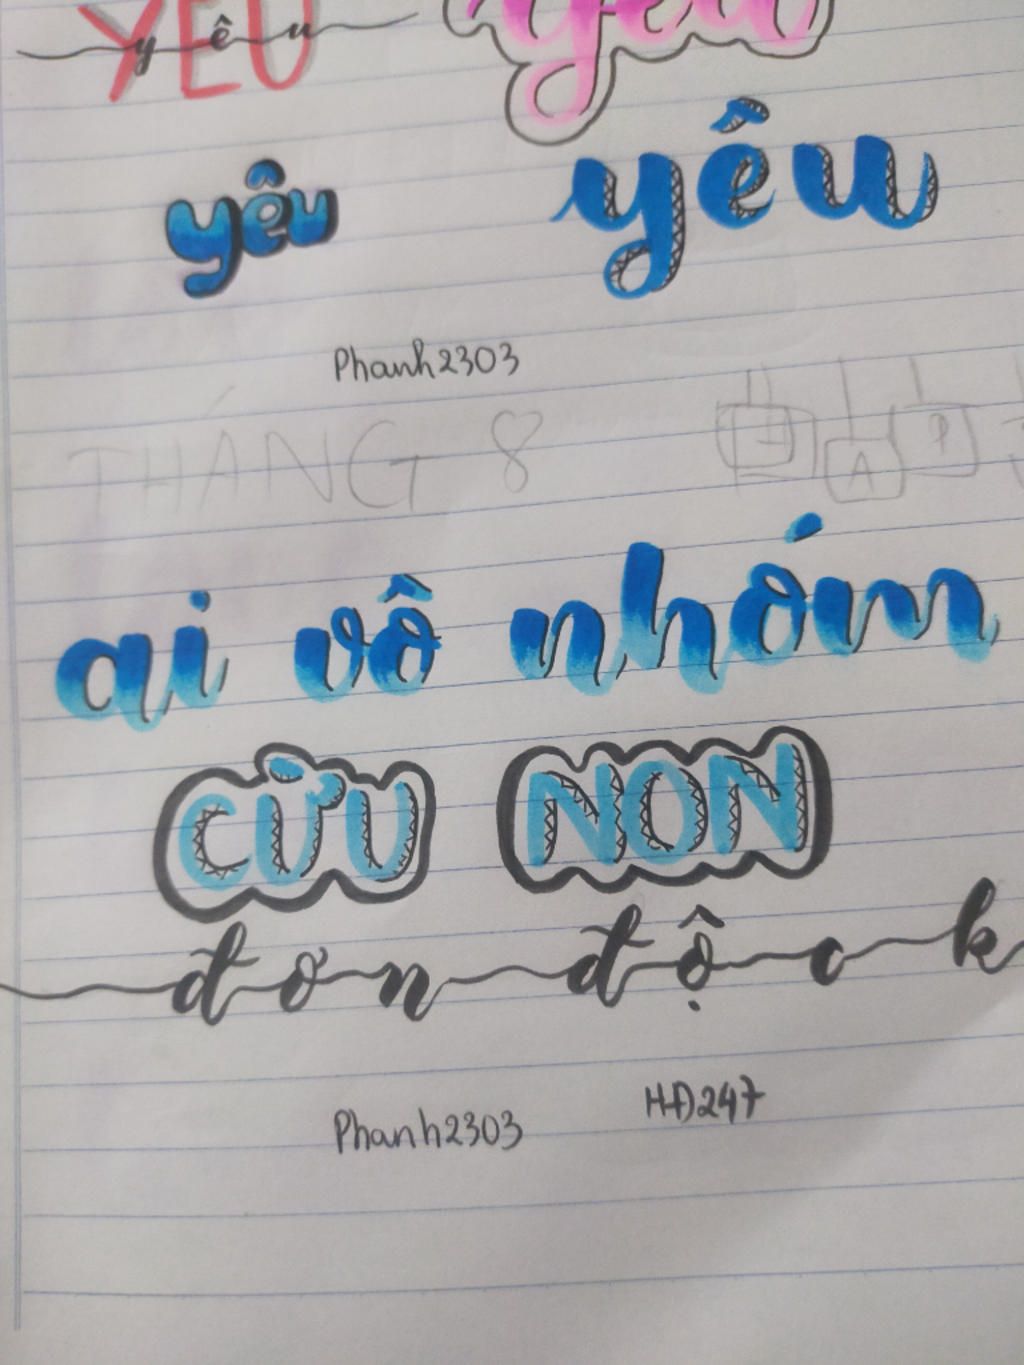 YÊU yêu
yêu
yêu yêu
Phanh2303
THÁNG 8
A
ai vô nhóm
CỪU NON
đơn độc k
Phanh2303 HĐ247